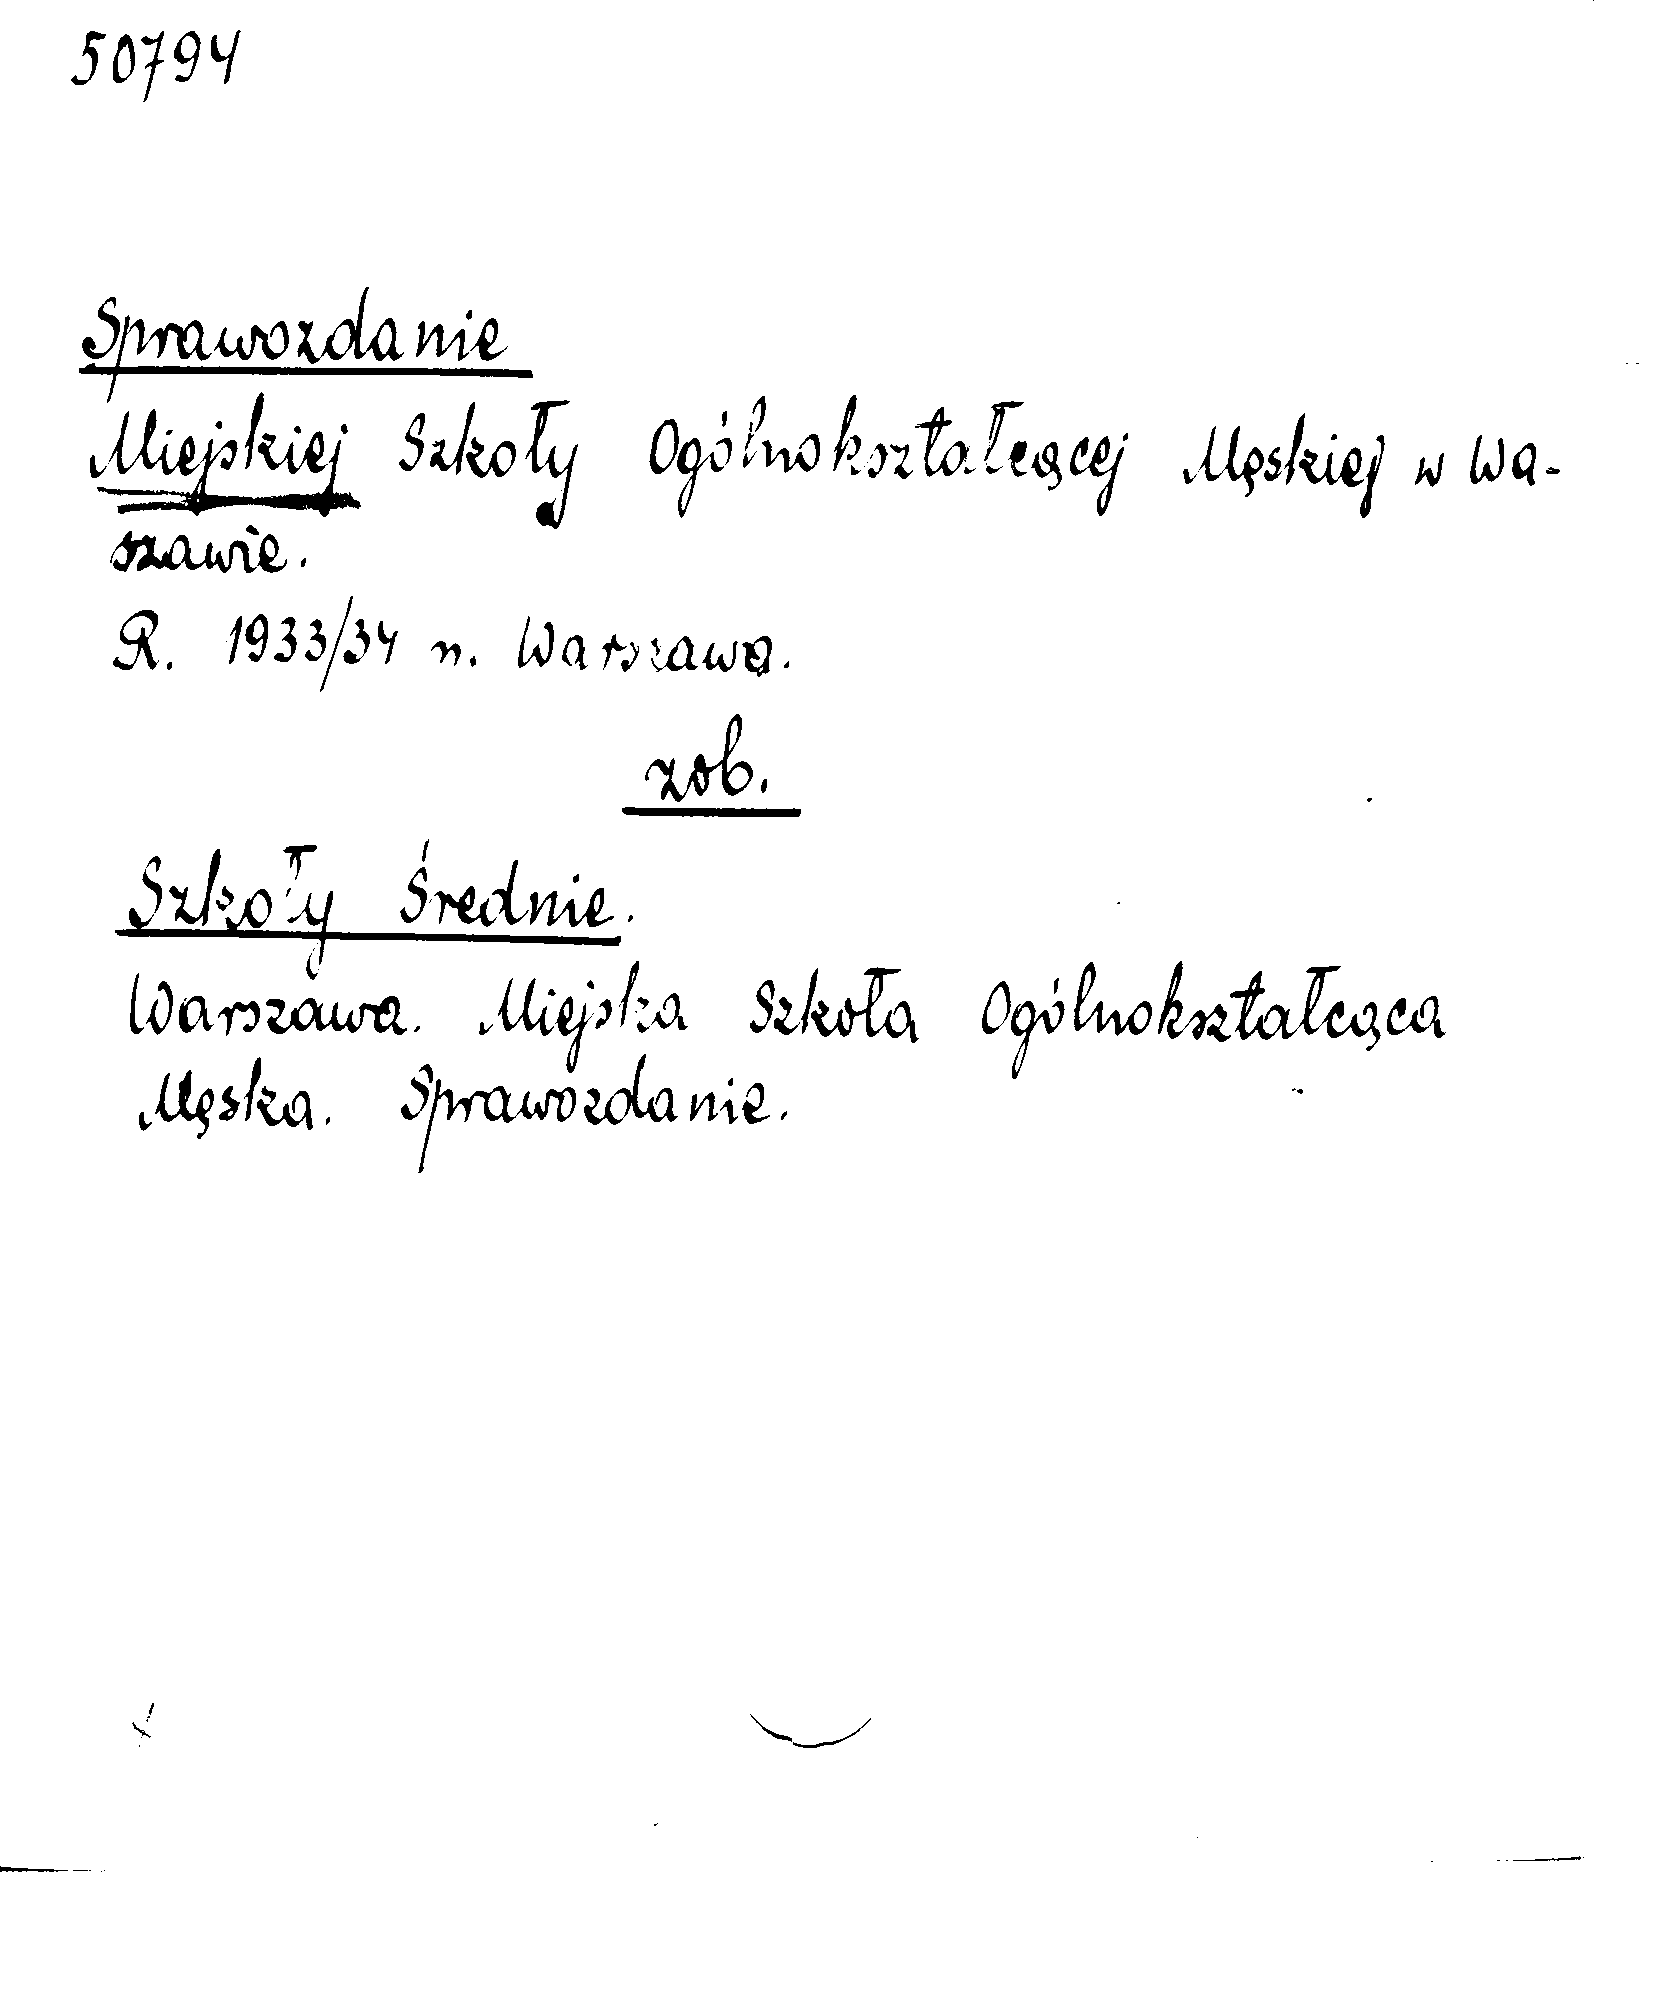 50794
Sprawozdanie
Miejskiej Szkoły Ogólnokształcącej Męskiej w Wa-
szawie.
R. 1933/34 n. Warszawa.
zob.
Szkoły Średnie.
Warszawa. Miejska Szkoła Ogólnokształcąca
Męska. Sprawozdanie.